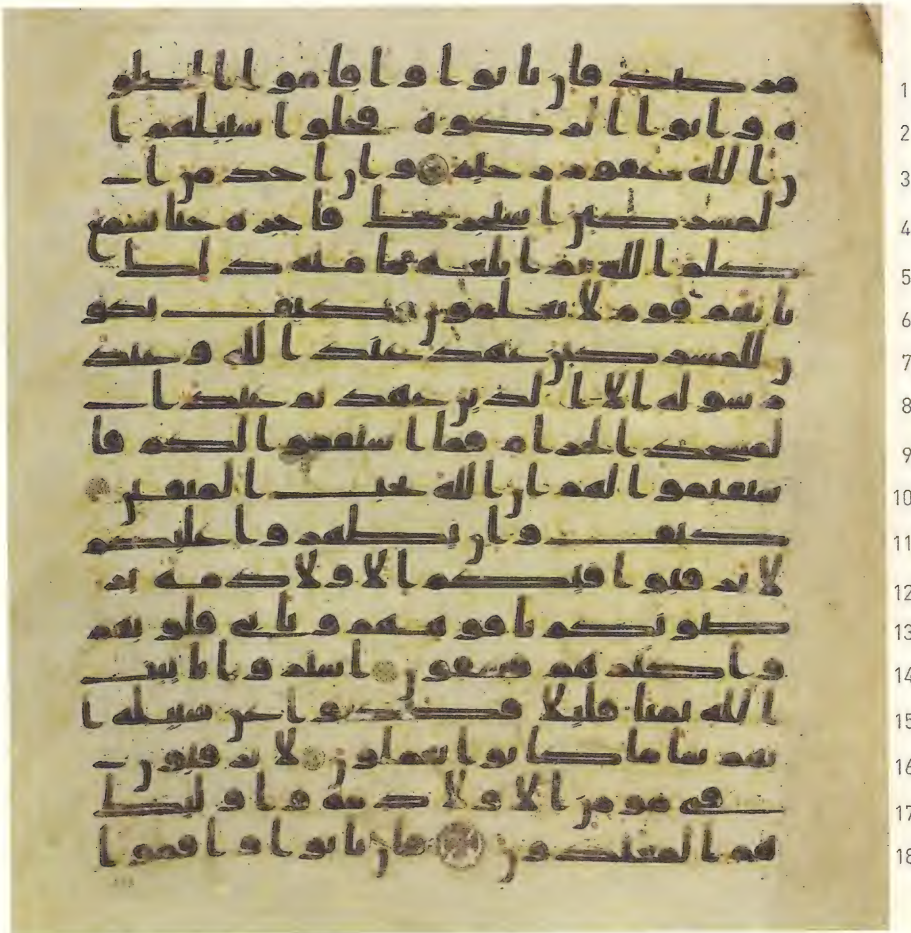 مرصد فان تابوا واقاموا الصلو 1
ه واتوا الزكوه فخلوا سبيلهم ا 2
ن الله غفور رحيم وان احد من ا 3
لمشركين استجرك فاجره حتا يسمع 4
كلم الله ثم ابلغه مامنه ذلك 5
بانهم قوم لا يعلمون كيف يكو 6
ن للمشركين عهد عند الله وعند 7
رسوله الا الذين عهدتم عند ا 8
لمسجد الحرام فما استقموا لكم فا 9
ستقيموا لهم ان الله يحب المتقين 10
كيف وان يظهروا عليكم 11
لا يرقبوا فيكم الا ولا ذمه ير 12
ضونكم بافوههم وتابى قلوبهم 13
واكثرهم فسقون اشتروا بايت 14
الله ثمنا قليلا فصدوا عن سبيله ا 15
نهم سا ما كانوا يعملون لا يرقبون 16
في مومن الا ولا ذمه واوليك 17
هم المعتدون فان تابوا واقموا 18